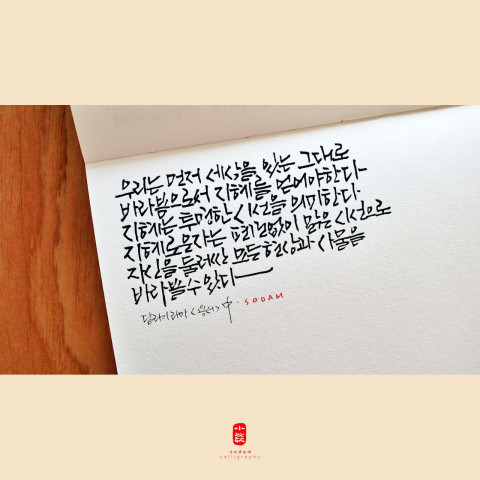 우리는 먼저 세상을 있는 그대로
바라봄으로서 지혜를 얻어야한다
지혜는 투명한 시선을 의미한다.
지혜로운자는 편견없이 맑은 시선으로
자신을 둘러싼 모든현상과 사물을
바라볼수 있다
달라이라마 <용서> 中 - SODAM
sodam
calligraphy